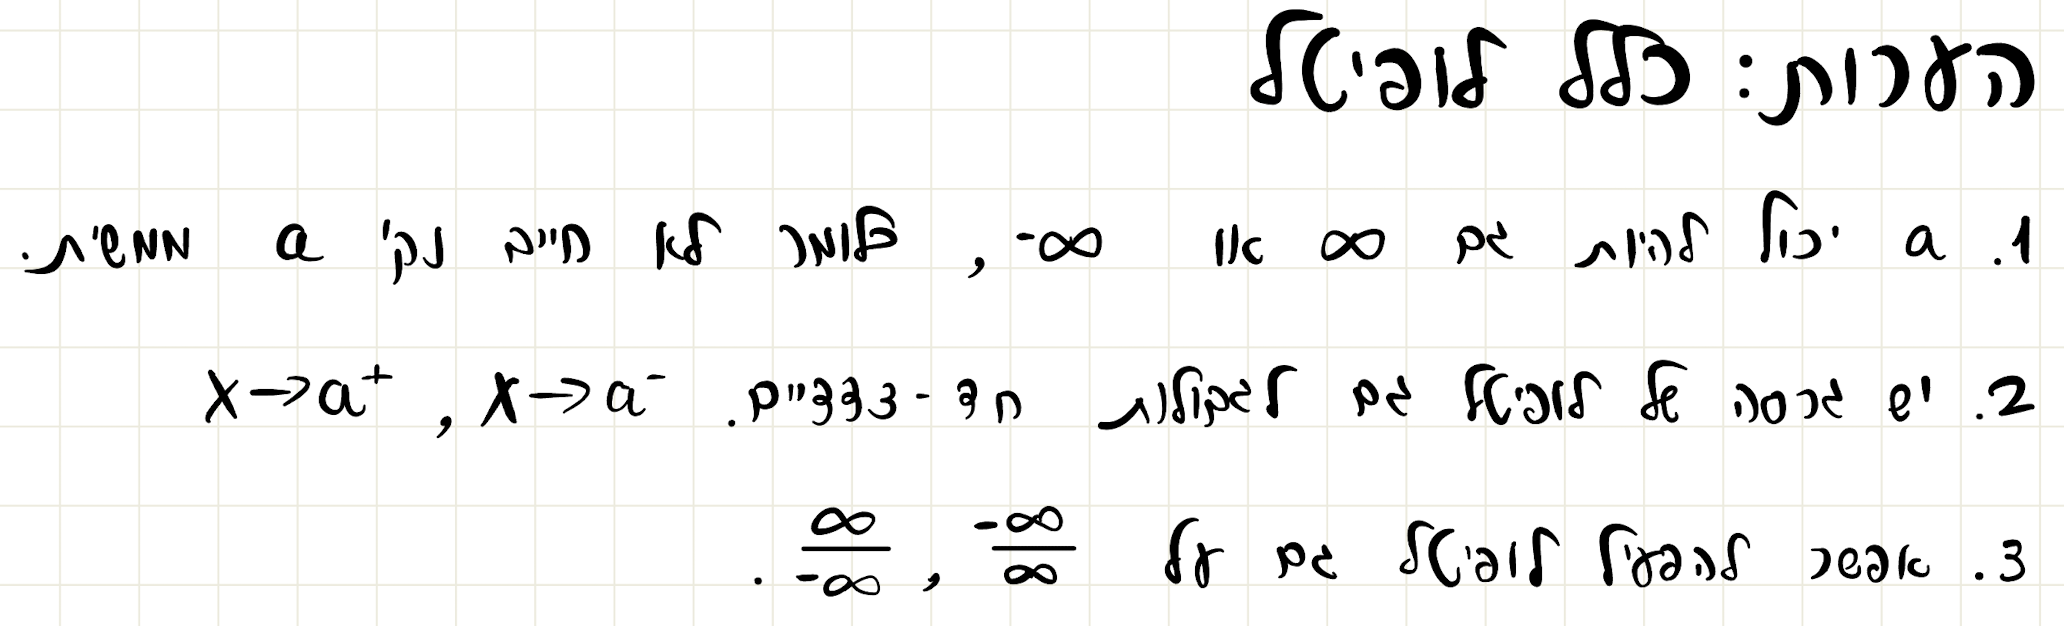 הערות: כלל לופיטל
1. a יכול להיות גם ∞ או -∞, כלומר לא חייב נק' a ממשית.
2. יש גרסה של לופיטל גם לגבולות חד-צדדיים. x→a⁻, x→a⁺
3. אפשר להפעיל לופיטל גם על -∞/∞, ∞/-∞.